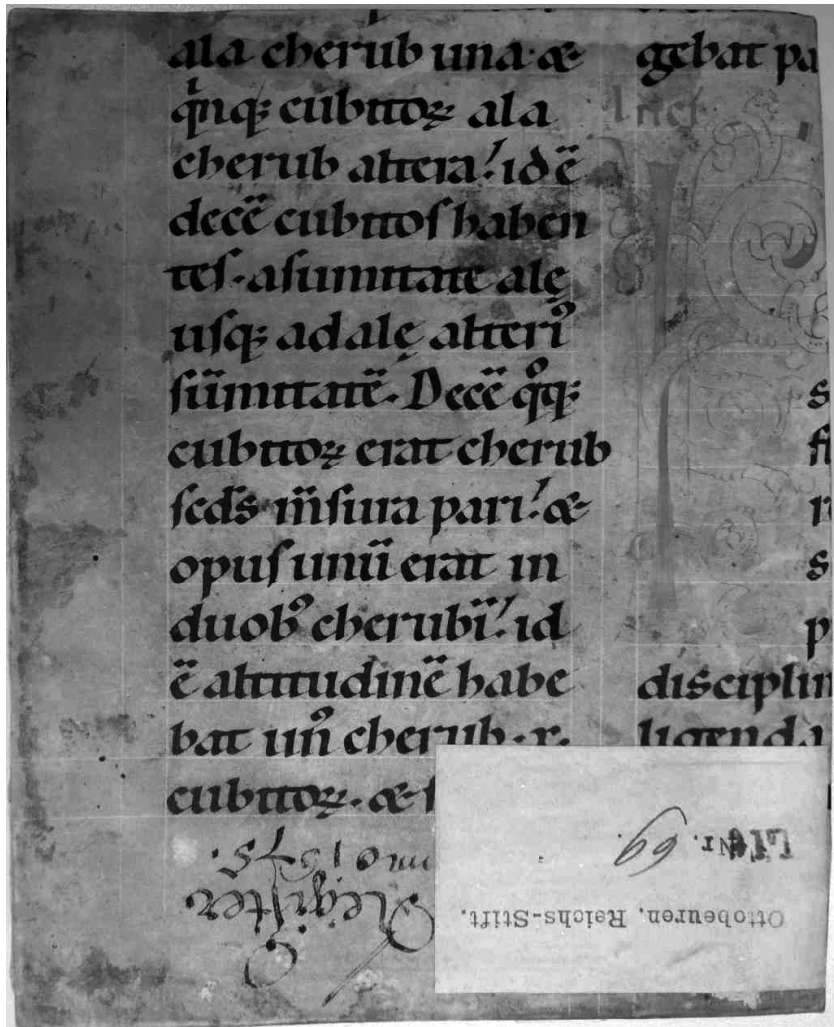 ala cherub una· &
q̇nq; cubitoꝝ ala
cherub altera! id ē
decē cubitos haben
tes· a sumitate alę
usq; ad alę alteri᾽
sūmitatē· Decē q̊q;
cubitoꝝ erat cherub
scđs m̄sura pari! &
opus unū erat in
duob᾽ cherubī! id
ē altitudinē habe
bat un᾽ cherub· x·
cubitoꝝ· &
gebat pa
Inci
s
fi
r
s
p
disciplin
ligenda
Ottobeuren, Reichs-Stift.
Nr. 69.
Register
1575.